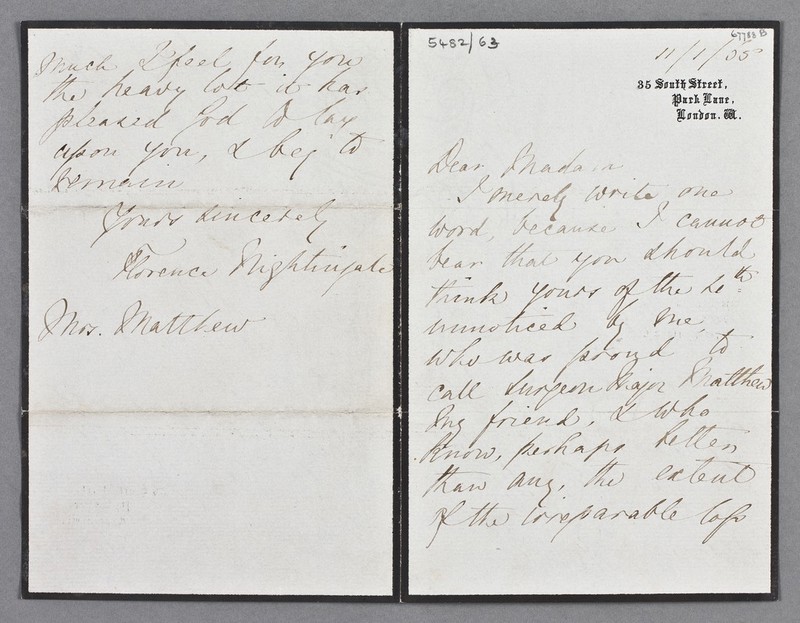 5482/63
67788 B
11/1/
35 South Street,
Park Lane,
London. W.
Dear Madam
I merely write one
word, because I cannot
bear that you should
think yours of the
unnoticed by me,
who was proud to
call Surgeon Major Matthew
my friend, & who
know, perhaps better
than any, the extent
of the irreparable loss
much I feel for you
the heavy lot it has
pleased God to lay
upon you, & beg to
remain
Yours sincerely
Florence Nightingale
Mrs. Matthew